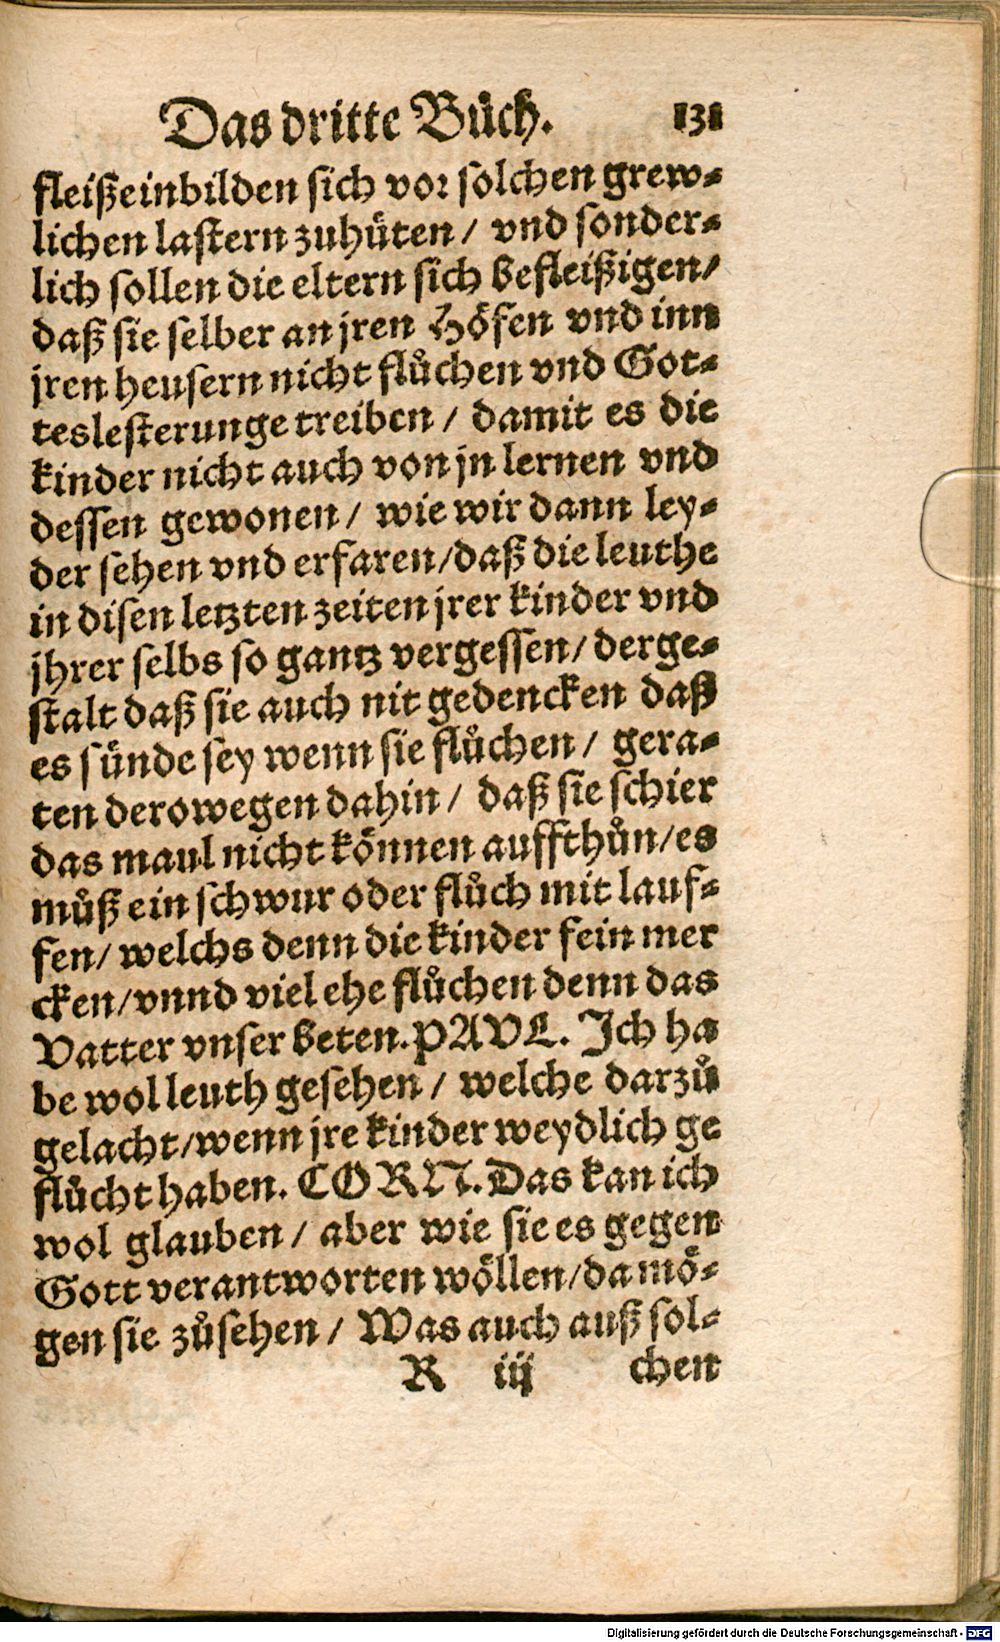 Das dritte Bůch. 131
fleiß einbilden sich vor solchen grew-
lichen lastern zuhüten / vnd sonder-
lich sollen die eltern sich befleißigen /
daß sie selber an jren Höfen vnd inn
jren heusern nicht flůchen vnd Got-
teslesterunge treiben / damit es die
kinder nicht auch von jn lernen vnd
dessen gewonen / wie wir dann ley-
der sehen vnd erfaren / daß die leuthe
in disen letzten zeiten jrer kinder vnd
jhrer selbs so gantz vergessen / derge-
stalt daß sie auch nit gedencken daß
es sünde sey wenn sie flůchen / gera-
ten derowegen dahin / daß sie schier
das maul nicht können auffthůn / es
můß ein schwur oder flůch mit lauf-
fen / welchs denn die kinder fein mer
cken / vnnd viel ehe flůchen denn das
Vatter vnser beten. PAVL. Ich ha
be wol leuth gesehen / welche darzů
gelacht / wenn jre kinder weydlich ge
flůcht haben. CORN. Das kan ich
wol glauben / aber wie sie es gegen
Gott verantworten wöllen / da mö-
gen sie zůsehen / Was auch auß sol-
R iij chen
Digitalisierung gefördert durch die Deutsche Forschungsgemeinschaft - DFG